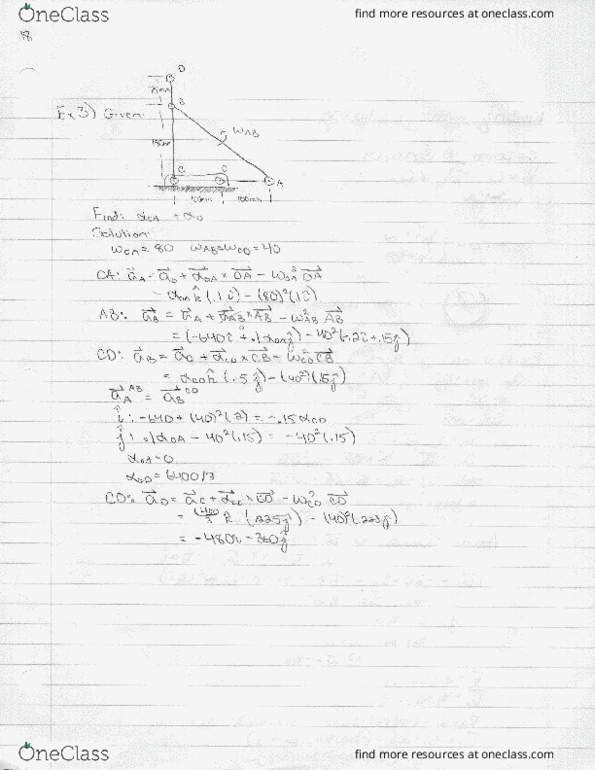 OneClass
find more resources at oneclass.com
18
D
75mm
B
Ex 3) Given:
ω_AB
150mm
C
O
A
100mm
100mm
Find: α_OA + a_D
Solution:
ω_OA = 80 ω_AB = ω_CD = 40
OA: a⃗_A = a⃗_O + α⃗_OA × OA⃗ − ω²_OA OA⃗
= α_OA k̂ (.1î) − (80)²(.1î)
AB: a⃗_B = a⃗_A + α⃗_AB × AB⃗ − ω²_AB AB⃗
= (-640î + .1α_OA ĵ) − 40²(-.2î + .15ĵ)
CD: a⃗_B = a⃗_C + α⃗_CD × CB⃗ − ω²_CD CB⃗
= α_CD k̂ (.15ĵ) − (40²)(.15ĵ)
a⃗_A^AB = a⃗_B^CD
î: -640 + (40)²(.2) = -.15α_CD
ĵ: .1α_OA − 40²(.15) = −40²(.15)
α_OA = 0
α_CD = 6400/3
CD: a⃗_D = a⃗_C + α⃗_CD × CD⃗ − ω²_CD CD⃗
k̂ (.225ĵ) − (40)²(.225ĵ)
= -480î − 360ĵ
OneClass
find more resources at oneclass.com